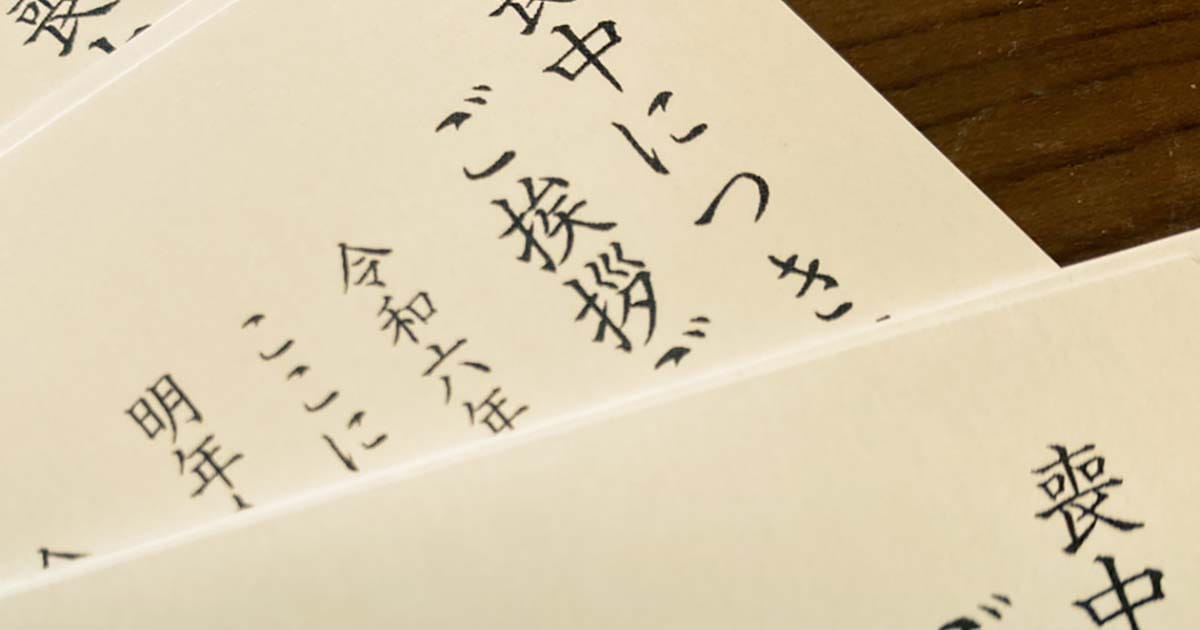 喪
喪中につき
ご挨拶ご
令和六年
ここに
明年
喪中
ご